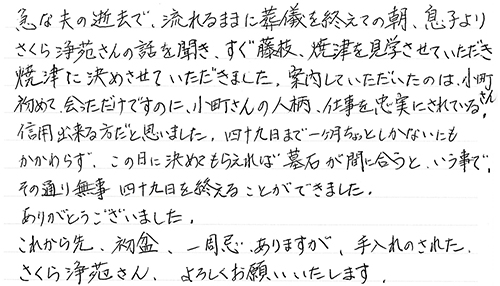 急な夫の逝去で、流れるままに葬儀を終えての朝、息子より
さくら浄苑さんの話を聞き、すぐ藤枝、焼津を見学させていただき
焼津に決めさせていただきました。案内していただいたのは、小町さん
初めて会っただけですのに、小町さんの人柄、仕事を忠実にされている。
信用出来る方だと思いました。四十九日まで一ヶ月ちょっとしかないにも
かかわらず、この日に決めてもらえれば墓石が間に合うという事で、
その通り無事 四十九日を終えることができました。
ありがとうございました。
これから先、初盆、一周忌、ありますが、手入れのされた、
さくら浄苑さん、よろしくお願いいたします。